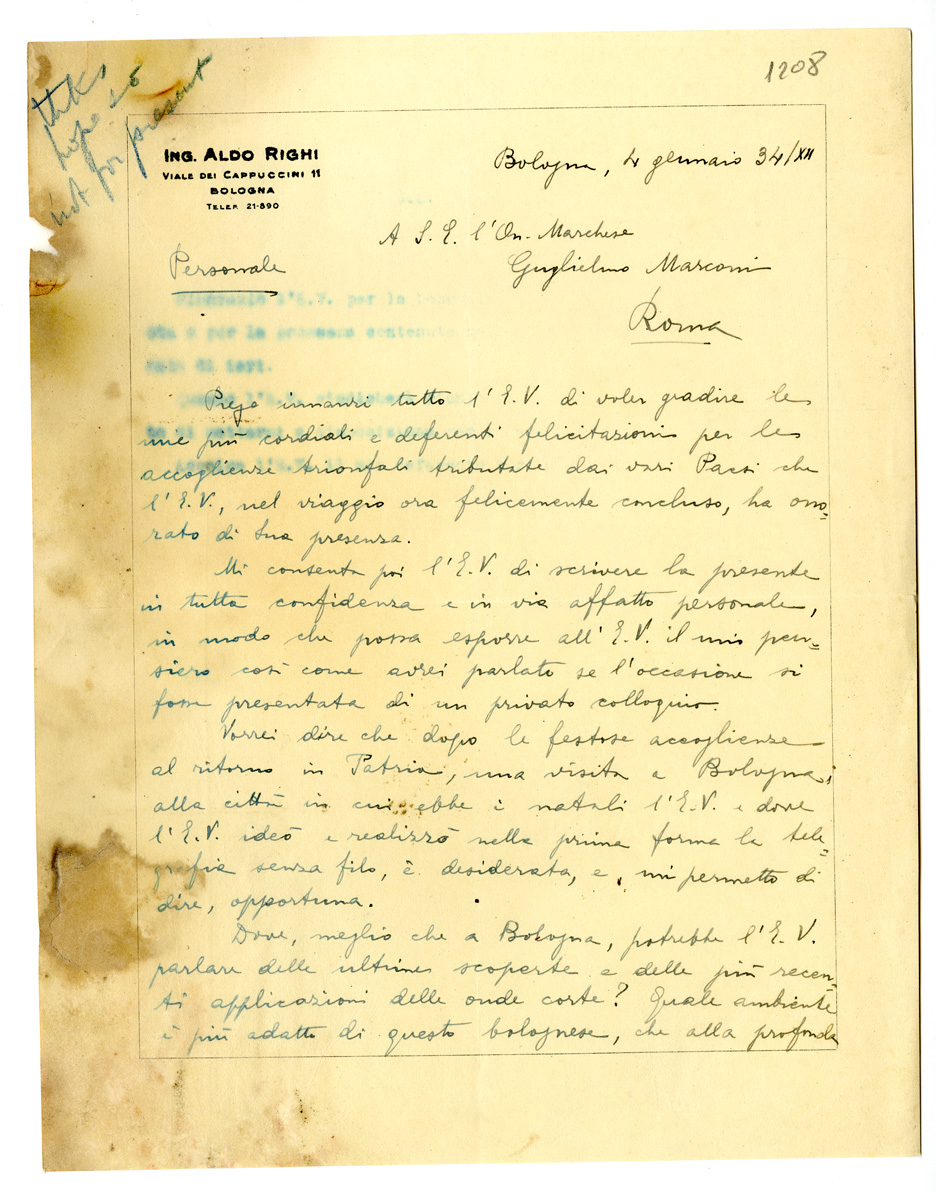 1208
thks
hope so
not for present
ING. ALDO RIGHI
VIALE DEI CAPPUCCINI 11
BOLOGNA
TELEF. 21-890
Bologna, 4 gennaio 34/XII
A S. E. l'On. Marchese
Guglielmo Marconi
Personale
Roma
l'E.V. per la
sta e per la promessa contenuta
di ieri.
Prego innanzi tutto l'E.V. di voler gradire le
mie più cordiali e deferenti felicitazioni per le
accoglienze trionfali tributate dai vari Paesi che
l'E.V., nel viaggio ora felicemente concluso, ha ono=
rato di Sua presenza.
Mi consenta poi l'E.V. di scrivere la presente
in tutta confidenza e in via affatto personale,
in modo che possa esporre all'E.V. il mio pen=
siero così come avrei parlato se l'occasione si
fosse presentata di un privato colloquio.
Vorrei dire che dopo le festose accoglienze
al ritorno in Patria, una visita a Bologna,
alla città in cui ebbe i natali l'E.V. e dove
l'E.V. ideò e realizzò nella prima forma la tele=
grafia senza filo, è desiderata, e, mi permetto di
dire, opportuna.
Dove, meglio che a Bologna, potrebbe l'E.V.
parlare delle ultime scoperte e delle più recen=
ti applicazioni delle onde corte? Quale ambiente
è più adatto di questo bolognese, che alla profonda